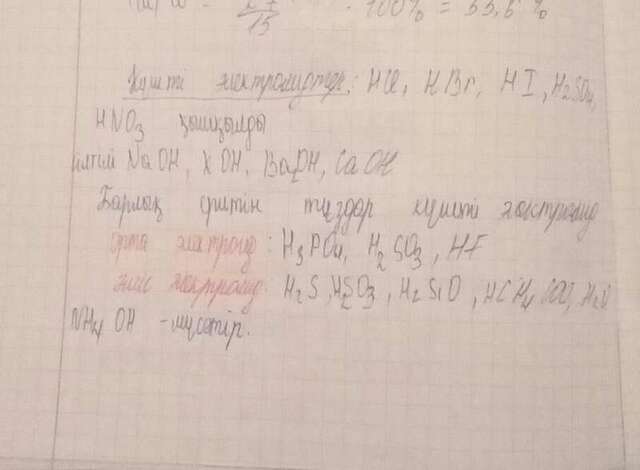 27/15 · 100% = 53,6 %
Күшті электролиттер: HCl, HBr, HI, H2SO4,
HNO3 қышқылды
NaOH, KOH, BaOH, CaOH
Барлық еритін тұздар күшті электролид
орта электролид: H3PO4, H2SO3, HF
электролид: H2S, H2SO3, H2SiO, HCH4COO, H2O
NH4OH - мүсәтір.